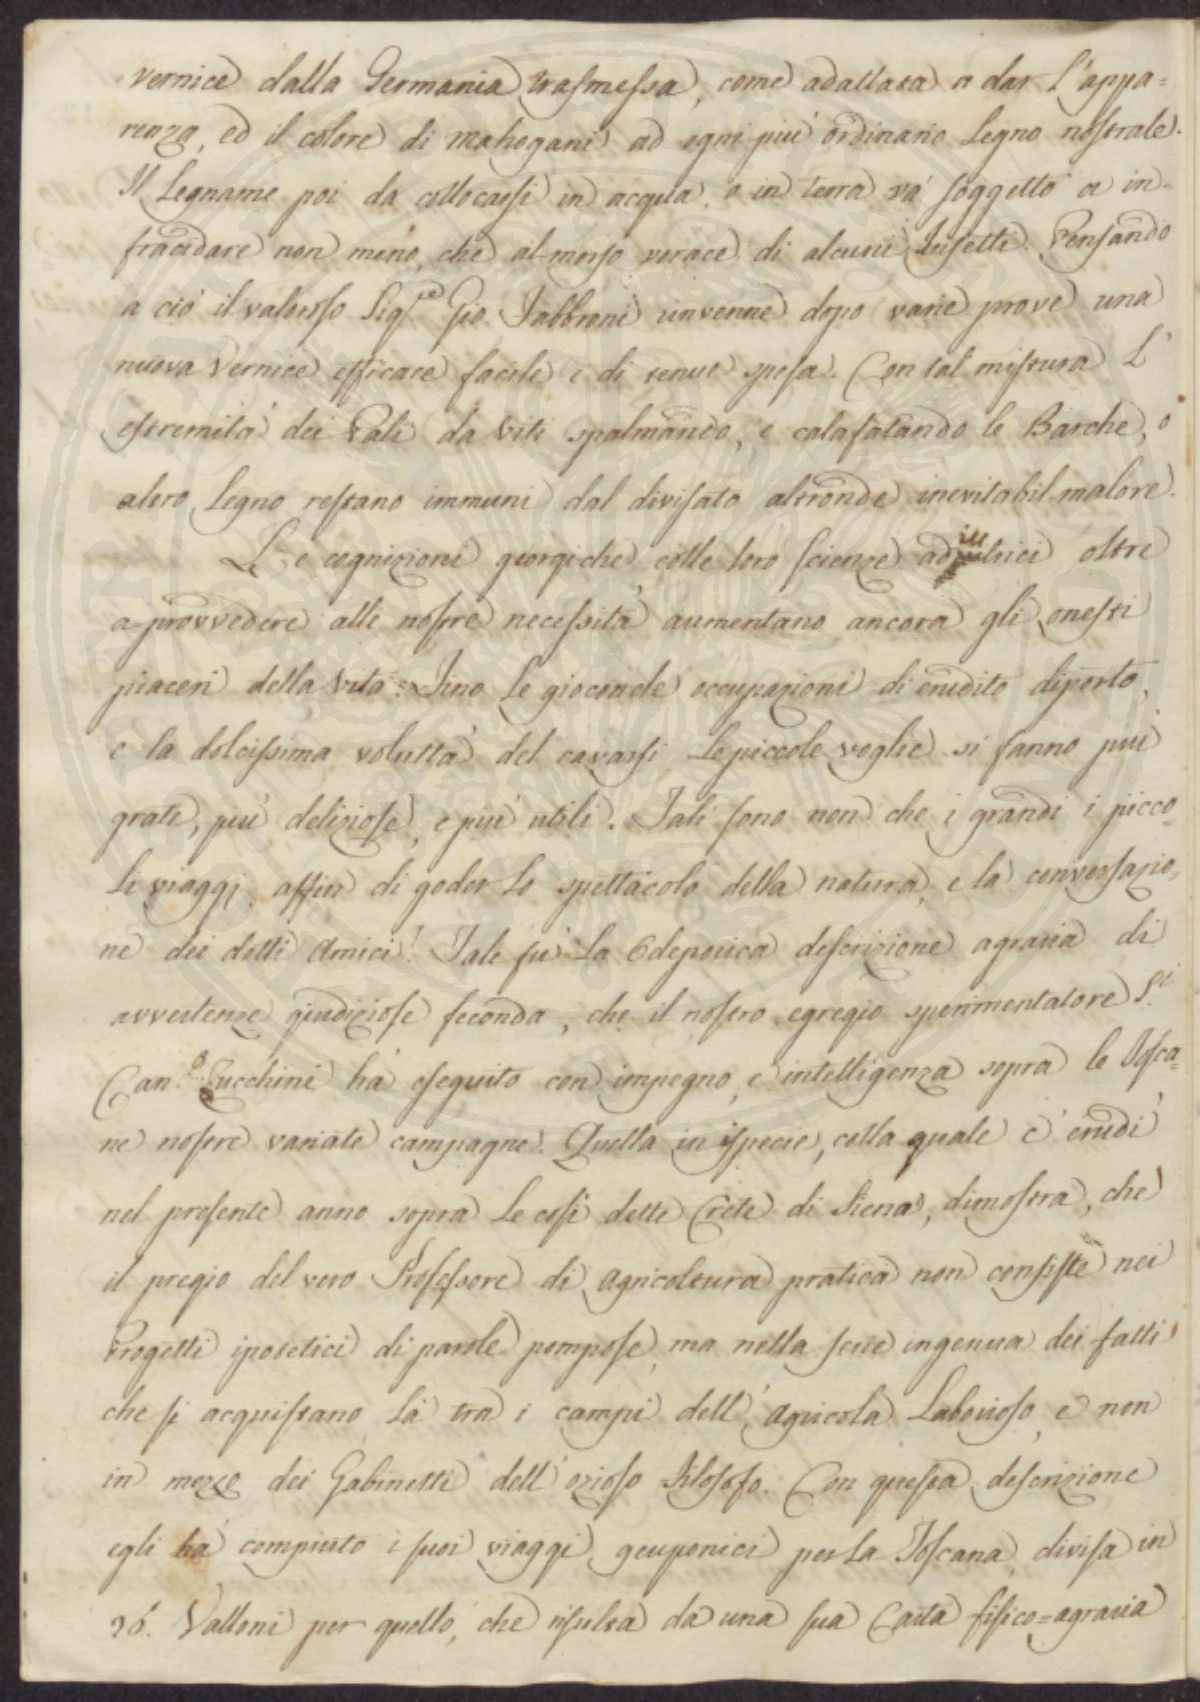 vernice dalla Germania trasmessa, come adattata a dar l'appa=
renza, ed il colore di mahogani ad ogni più ordinario Legno nostrale.
Il Legname poi da collocarsi in acqua, o in terra và soggetto a in=
fracidare non meno, che al morso vorace di alcuni Insetti. Pensando
a ciò il valoroso Sig.re Gio. Fabbroni rinvenne dopo varie prove una
nuova Vernice efficace facile e di tenue spesa. Con tal mistura L'
estremità dei Pali da Viti spalmando, e calafatando le Barche, o
altro Legno restano immuni dal divisato altronde inevitabil malore.
Le cognizioni georgiche colle loro scienze adiutrici oltre
a provvedere alle nostre necessità aumentano ancora gli onesti
piaceri della Vita: Fino Le gioconde occupazioni di erudito diporto,
e la dolcissima voluttà del cavarsi Le piccole voglie si fanno più
grate, più deliziose, e più utili. Tali sono non che i grandi i picco=
li viaggj affin di goder Lo spettacolo della natura, e la conversazio=
ne dei dotti Amici! Tale fù La Odeporica descrizione agraria di
avvertenze giudiziose feconda, che il nostro egregio sperimentatore S.r
Can.o Zucchini hà eseguito con impegno, e intelligenza sopra le Tosca=
ne nostre variate campagne. Quella in ispecie, colla quale c'erudì
nel presente anno sopra Le così dette Crete di Siena, dimostra, che
il pregio del vero Professore di Agricoltura pratica non consiste nei
Progetti ipotetici di parole pompose, ma nella serie ingenua dei fatti
che si acquistano Là tra i campi dell'Agricola Laborioso, e non
in mezzo dei Gabinetti dell'ozioso Filosofo. Con questa descrizione
egli hà compiuto i suoi viaggi geuponici per La Toscana divisa in
26. Valloni per quello, che risulta da una sua Carta fisico=agraria